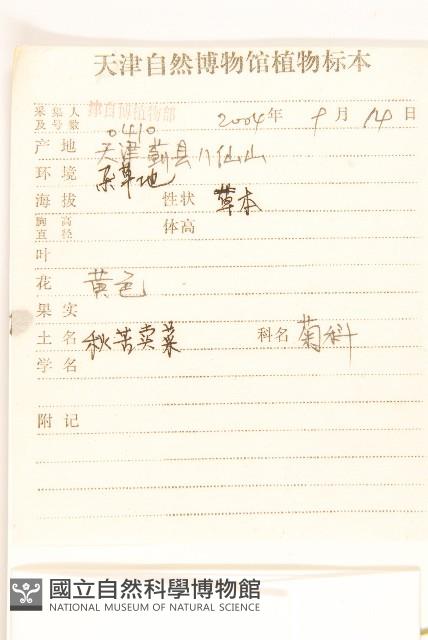 天津自然博物馆植物标本
采集人及号数 津自博植物部 0410 2004年 9月 14日
产地 天津蓟县八仙山
环境 杂草地
海拔 性状 草本
胸高直径 体高
叶
花 黄色
果实
土名 秋苦荬菜 科名 菊科
学名
附记
國立自然科學博物館
NATIONAL MUSEUM OF NATURAL SCIENCE